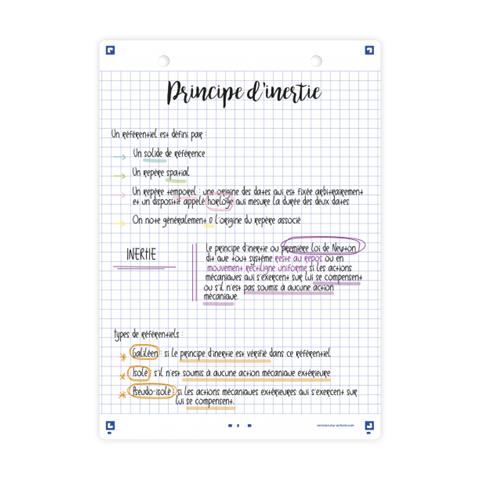 Principe d'inertie
Un référentiel est défini par :
Un solide de référence
Un repère spatial
Un repère temporel : une origine des dates qui est fixée arbitrairement
et un dispositif appelé horloge qui mesure la durée des deux dates
On note généralement o l'origine du repère associé
INERTIE
Le principe d'inertie ou première loi de Newton
dit que tout système reste au repos ou en
mouvement rectiligne uniforme si les actions
mécaniques qui s'exercent sur lui se compensent
ou s'il n'est pas soumis à aucune action
mécanique.
Types de référentiels :
Galiléen : si le principe d'inertie est vérifié dans ce référentiel
Isolé : s'il n'est soumis à aucune action mécanique extérieure
Pseudo-isolé : si les actions mécaniques extérieures qui s'exercent sur
lui se compensent.